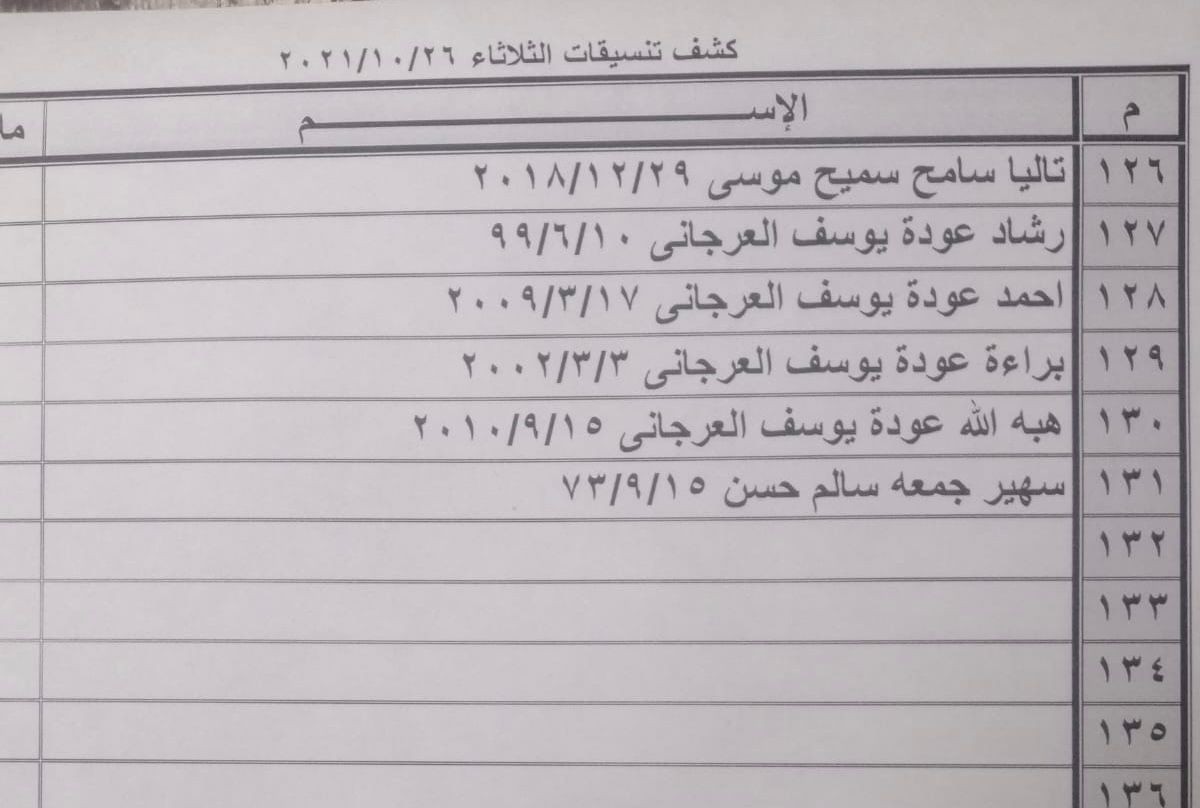 كشف تنسيقات الثلاثاء ٢٠٢١/١٠/٢٦
م الإســـــــــم ما
١٢٦ تاليا سامح سميح موسى ٢٠١٨/١٢/٢٩
١٢٧ رشاد عودة يوسف العرجانى ٩٩/٦/١٠
١٢٨ احمد عودة يوسف العرجانى ٢٠٠٩/٣/١٧
١٢٩ براءة عودة يوسف العرجانى ٢٠٠٢/٣/٣
١٣٠ هبه الله عودة يوسف العرجانى ٢٠١٠/٩/١٥
١٣١ سهير جمعه سالم حسن ٧٣/٩/١٥
١٣٢
١٣٣
١٣٤
١٣٥
١٣٦